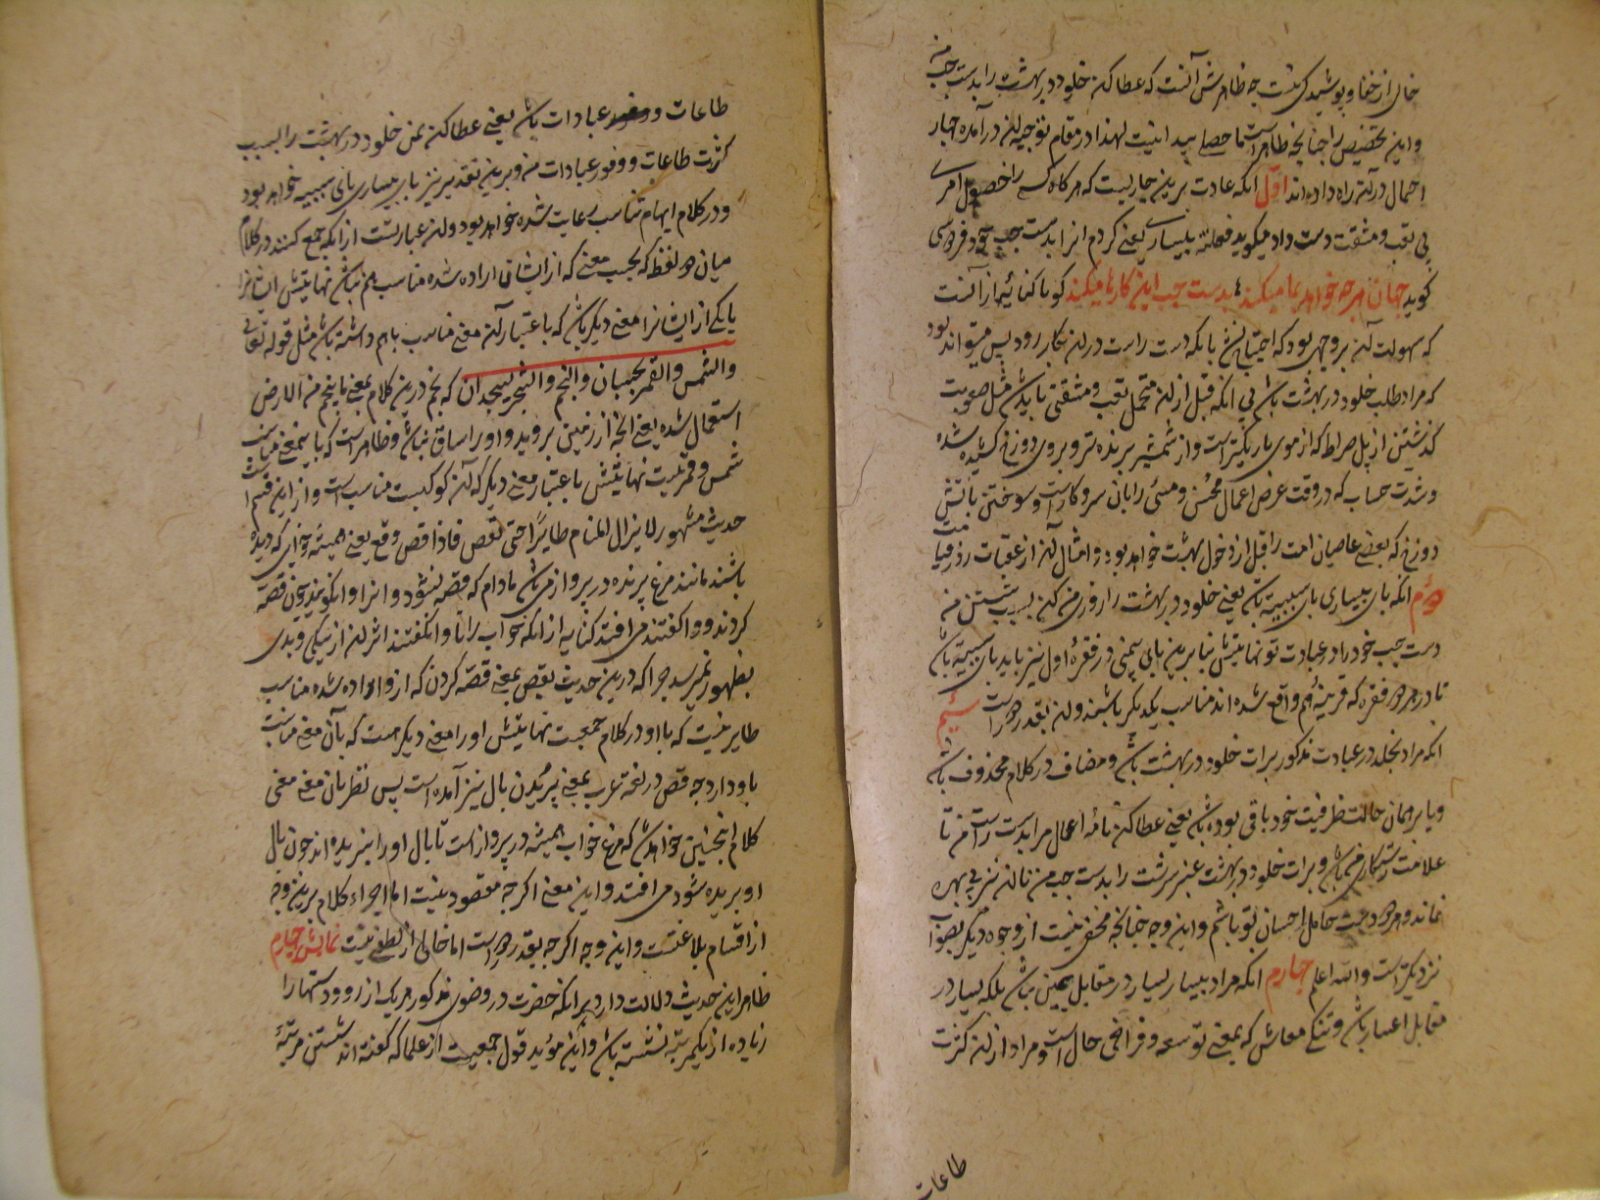 خالی از خفا و پوشیدگی نیست چه ظاهرش آنست که عطا کن خلود در بهشت را بدست چپ من
و این تخصیص را چنانچه ظاهر است حاصلی پیدا نیست لهذا در مقام توجیه آن درآمده چهار
احتمال در آن راه داده‌اند اول آنکه عادت برین جاریست که هرگاه کسی را حصول امری
بی تعب و مشقت دست داد میگوید فعلته بیساری یعنی کردم آنرا بدست چپ خود فردوسی
گوید جهان هر چه خواهد بما میکند بدست چپ این کارها میکند گویا کنایه از آنست
که سهولت آن بروجهی بود که احتیاجش بانکه دست راست در آن بکار رود پس میتواند بود
که مراد طلب خلود در بهشت باشد بی آنکه قبل از آن متحمل تعب و مشقتی باید شد مثل صعوبت
گذشتن از پل صراط که از موی باریکتر است و از شمشیر برنده‌تر و بر روی دوزخ کشیده شده
و شدت حساب که در وقت عرض اعمال محسن و مسئ را بان سر و کار است و سوختن بآتش
دوزخ که بعضی عاصیان امت را قبل از دخول بهشت خواهد بود و امثال آن از عقبات روز قیامت
دوم آنکه بای بیساری بای سببیه باشد یعنی خلود در بهشت را روزی من کن بسبب شستن من
دست چپ خود را در عبادت تو نهایتش بنا برین بای بیمینی در فقره اول نیز باید بای سببیه باشد
تا در هر دو فقره که قرینه هم واقع شده‌اند مناسب یکدیگر باشند و این بقدر دور است سیم
آنکه مراد بخلد در عبادت مذکور برات خلود در بهشت باشد و مضاف در کلام محذوف باشد
و با بر همان حالت ظرفیت خود باقی بوده باشد یعنی عطا کن نامه اعمال مرا بدست راست من تا
علامت رستگاری من باشد و برات خلود در بهشت عنبر سرشت را بدست چپ من تا آن نیز بی بهره
نماند و هر دو دست حامل احسان تو باشم و این وجه چنانچه مخفی نیست از وجوه دیگر بصواب
نزدیکتر است والله اعلم چهارم آنکه مراد بیسار یسار در مقابل یمین نباشد بلکه یسار در
مقابل اعسار باشد و تنگی معاش که بمعنی توسعه و فراخی حال است و مراد از آن کثرت
طاعات
طاعات و وفور عبادات باشد یعنی عطا کن بمن خلود در بهشت را بسبب
کثرت طاعات و وفور عبادات من و برین تقدیر نیز بای بیساری بای سببیه خواهد بود
و در کلام ایهام تناسب رعایت شده خواهد بود و آن عبارتست از آنکه جمع کنند در کلام
میان دو لفظ که بحسب معنی که از ایشان اراده شده مناسب هم نباشد نهایتش ایشانرا
یا یکی از ایشانرا معنی دیگر باشد که باعتبار آن معنی مناسب باهم داشته باشد مثل قوله تعالی
والشمس والقمر بحسبان والنجم والشجر یسجدان که نجم درین کلام بمعنی ما ینجم من الارض
استعمال شده یعنی آنچه از زمین بروید و او را ساق نباشد و ظاهر است که باینمعنی مناسب
شمس و قمر نیست نهایتش باعتبار معنی دیگر که آن کوکبست مناسب است و از این قسم است
حدیث مشهور لا یزال المنام طایرا حتی یقص فاذا قص وقع یعنی همیشه خوابی که دیده
باشند مانند مرغ پرنده در پرواز می باشد مادام که قصه نشود و آنرا وانگویند چون قصه
کردند و واگفتند می افتد کنایه از آنکه خواب را تا وانگفتند اثر آن از نیکی و بدی
بظهور نمیرسد چرا که درین حدیث یقص بمعنی قصه کردن که از او اراده شده مناسب
طایر نیست که با او در کلام جمعست نهایتش او را معنی دیگر هست که بآن معنی مناسبت
باو دارد چه قص در لغة عرب بمعنی بریدن بال نیز آمده است پس نظر بان معنی معنی
کلام اینچنین خواهد شد که مرغ خواب همیشه در پرواز است تا بال او را نبریده‌اند چون بال
او بریده شود می افتد و این معنی اگر چه مقصود نیست اما اجراء کلام برین وجه
از اقسام بلاغتست و این وجه اگر چه بقدر دور است اما خالی از لطفی نیست نمایش چهارم
ظاهر این حدیث دلالت دارد برآنکه حضرت در وضوی مذکور هر یک از رو و دستها را
زیاده از یکمرتبه نشسته باشد و این مؤید قول جمعیست از علما که گفته‌اند شستن مرتبه